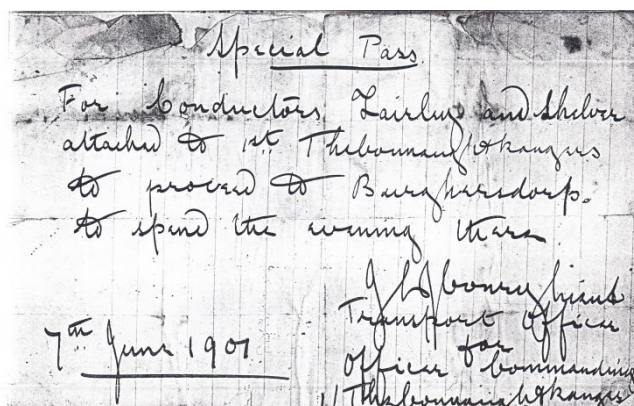 Special Pass
For Conductors Fairley and Shelver
attached to 1st The Connaught Rangers
to proceed to Burghersdorp.
to spend the evening there
Lieut
Transport Officer
for
7th June 1901
Officer Commanding
1/ The Connaught Rangers